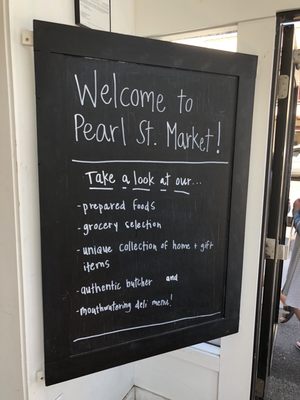 Welcome to
Pearl St. Market!
Take a look at our...
- prepared foods
- grocery selection
- unique collection of home + gift
items
- authentic butcher and
- mouthwatering deli menu!